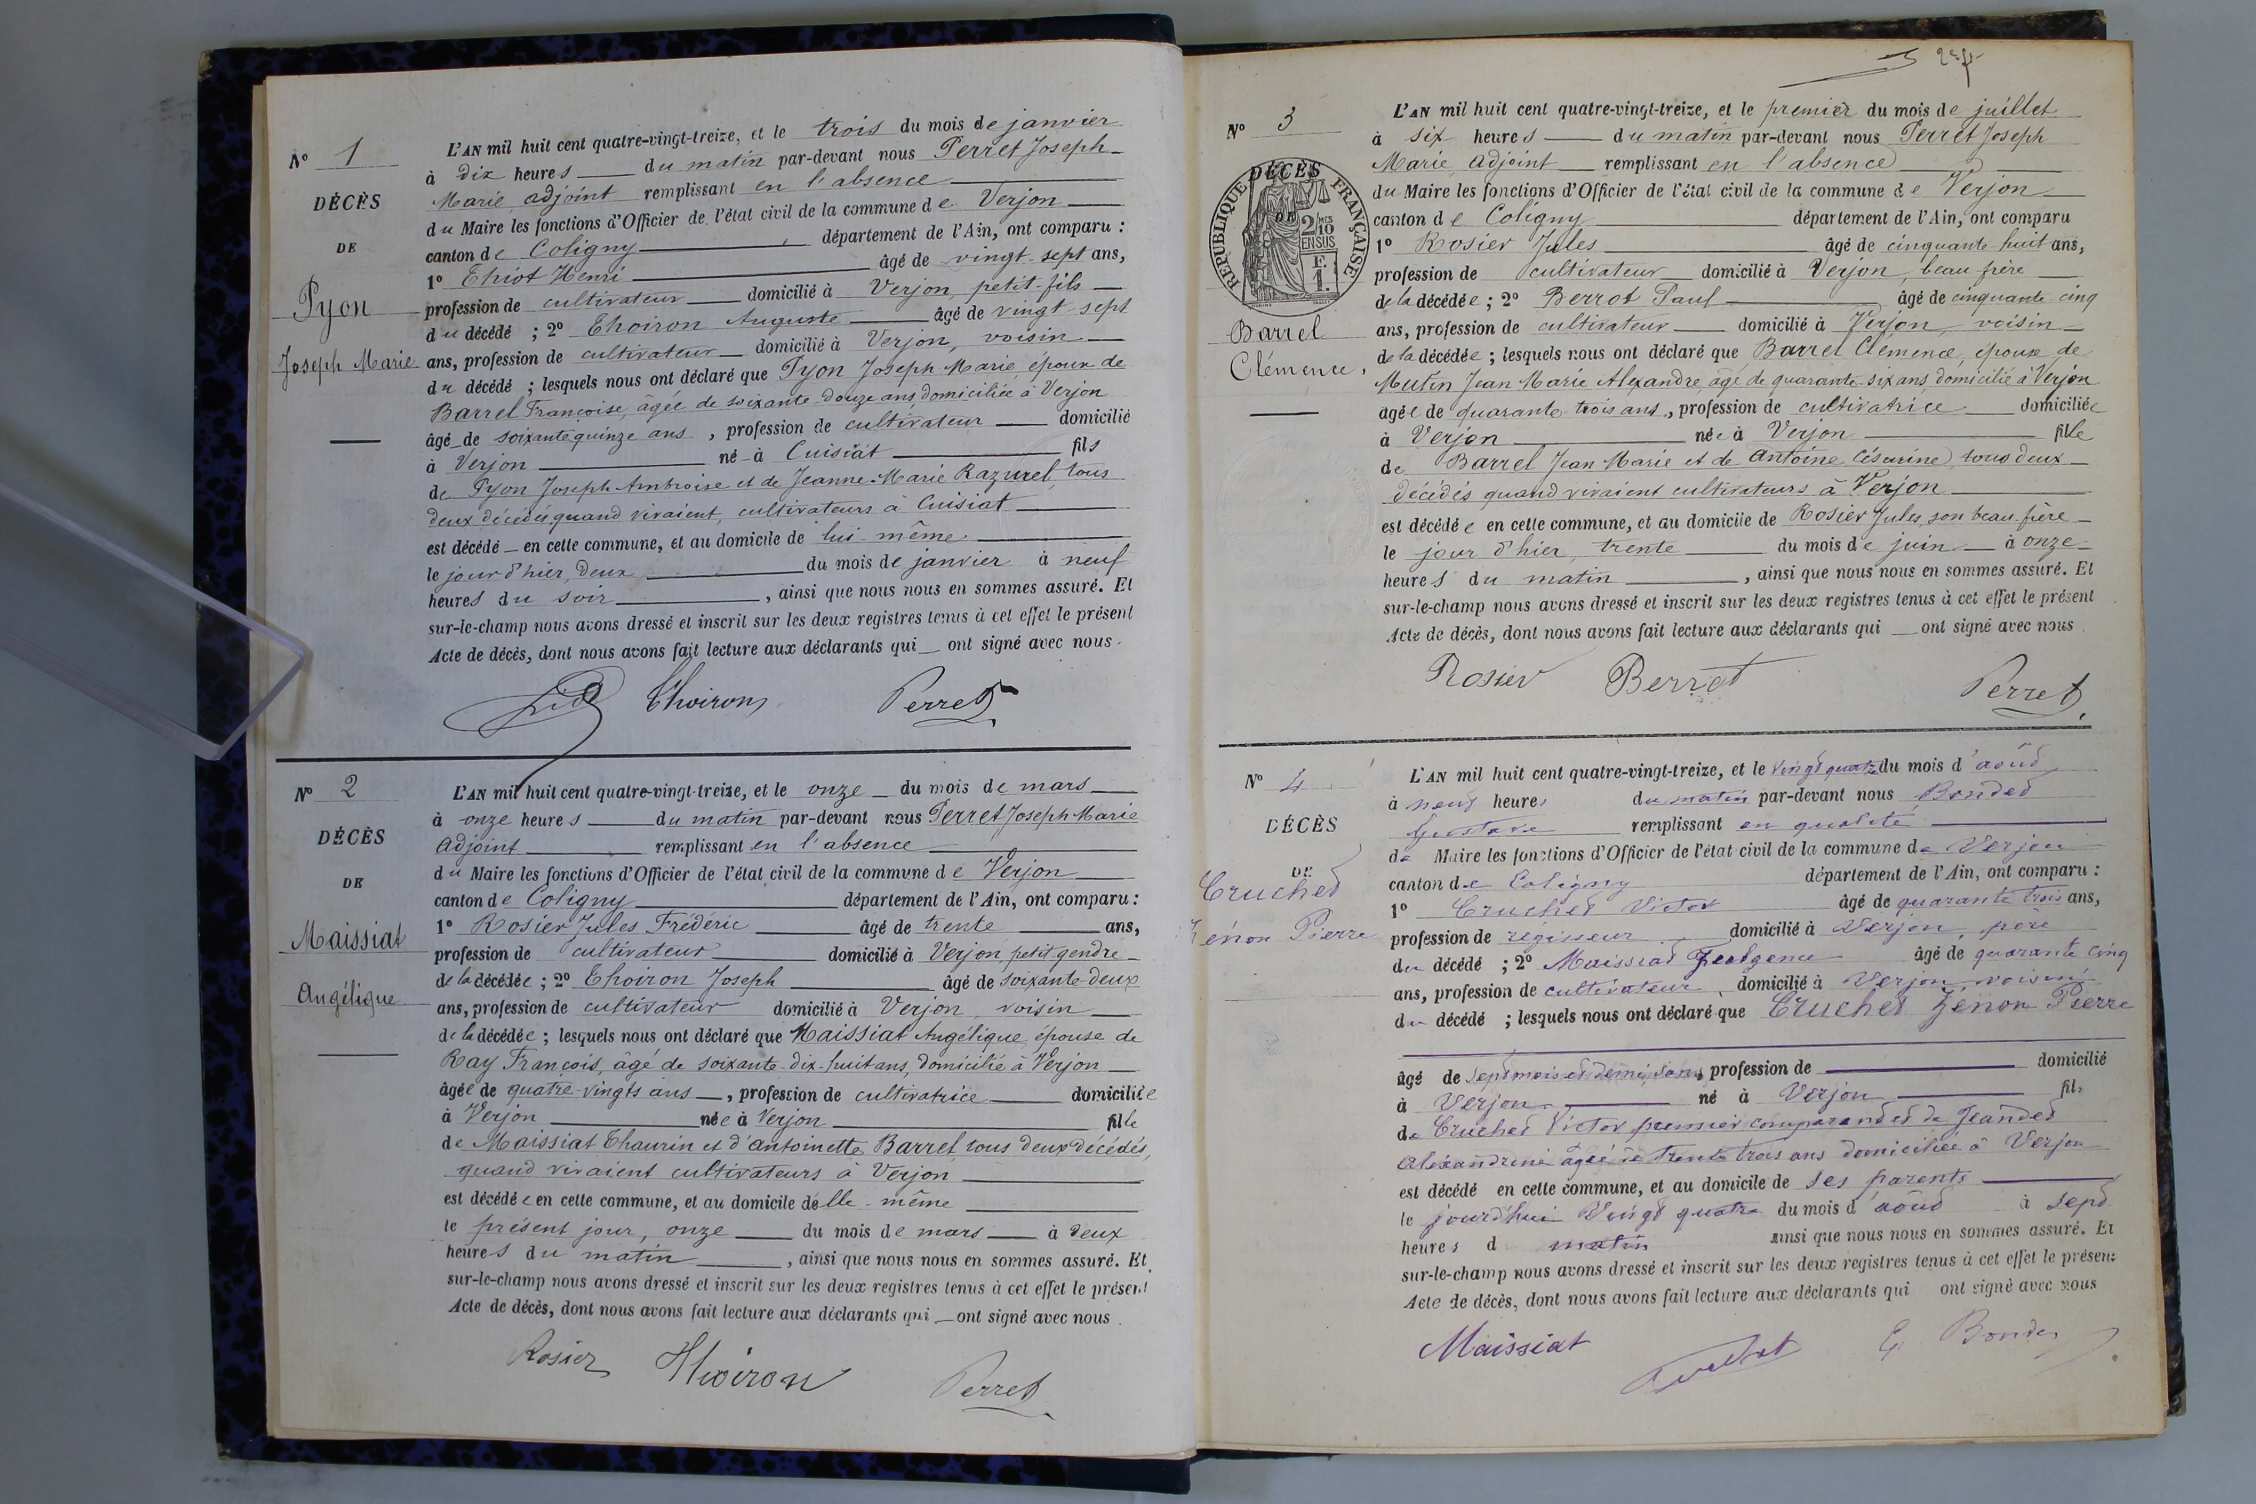 N° 1
DÉCÈS
DE
Pyon
Joseph Marie
L'AN mil huit cent quatre-vingt-treize, et le trois du mois de janvier
à dix heures du matin par-devant nous Perret Joseph
Marie, adjoint remplissant en l'absence
du Maire les fonctions d'Officier de l'état civil de la commune de Verjon
canton de Coligny département de l'Ain, ont comparu :
1° Thiot Henri âgé de vingt-sept ans,
profession de cultivateur domicilié à Verjon, petit-fils
du décédé ; 2° Thoiron Auguste âgé de vingt-sept
ans, profession de cultivateur domicilié à Verjon, voisin
du décédé ; lesquels nous ont déclaré que Pyon Joseph Marie, époux de
Barrel Françoise, âgée de soixante-douze ans domiciliée à Verjon
âgé de soixante quinze ans, profession de cultivateur domicilié
à Verjon né à Cuisiat fils
de Pyon Joseph Ambroise et de Jeanne-Marie Razurel, tous
deux décédés quand vivaient, cultivateurs à Cuisiat
est décédé en cette commune, et au domicile de lui-même
le jour d'hier, deux du mois de janvier à neuf
heures du soir, ainsi que nous nous en sommes assuré. Et
sur-le-champ nous avons dressé et inscrit sur les deux registres tenus à cet effet le présent
Acte de décès, dont nous avons fait lecture aux déclarants qui ont signé avec nous.
Thoiron Perret
N° 2
DÉCÈS
DE
Maissiat
Angélique
L'AN mil huit cent quatre-vingt-treize, et le onze du mois de mars
à onze heures du matin par-devant nous Perret Joseph Marie
adjoint remplissant en l'absence
du Maire les fonctions d'Officier de l'état civil de la commune de Verjon
canton de Coligny département de l'Ain, ont comparu :
1° Rosier Jules Frédéric âgé de trente ans,
profession de cultivateur domicilié à Verjon, petit gendre
de la décédée ; 2° Thoiron Joseph âgé de soixante-deux
ans, profession de cultivateur domicilié à Verjon, voisin
de la décédée ; lesquels nous ont déclaré que Maissiat Angélique, épouse de
Ray François, âgé de soixante-dix-huit ans, domicilié à Verjon
âgée de quatre-vingts ans, profession de cultivatrice domiciliée
à Verjon née à Verjon fille
de Maissiat Thaurin et d'Antoinette Barrel, tous deux décédés,
quand vivaient cultivateurs à Verjon
est décédée en cette commune, et au domicile d'elle-même
le présent jour, onze du mois de mars à deux
heures du matin, ainsi que nous nous en sommes assuré. Et
sur-le-champ nous avons dressé et inscrit sur les deux registres tenus à cet effet le présent
Acte de décès, dont nous avons fait lecture aux déclarants qui ont signé avec nous.
Rosier Thoiron Perret
N° 3
DÉCÈS
DE
RÉPUBLIQUE FRANÇAISE
2/10 EN SUS
F. 1.
Barrel
Clémence,
L'AN mil huit cent quatre-vingt-treize, et le premier du mois de juillet
à six heures du matin par-devant nous Perret Joseph
Marie, adjoint remplissant en l'absence
du Maire les fonctions d'Officier de l'état civil de la commune de Verjon
canton de Coligny département de l'Ain, ont comparu
1° Rosier Jules âgé de cinquante-huit ans,
profession de cultivateur domicilié à Verjon, beau frère
de la décédée ; 2° Berrot Paul âgé de cinquante-cinq
ans, profession de cultivateur domicilié à Verjon, voisin
de la décédée ; lesquels nous ont déclaré que Barrel Clémence, épouse de
Mutin Jean Marie Alexandre, âgé de quarante-six ans, domicilié à Verjon
âgée de quarante-trois ans, profession de cultivatrice domiciliée
à Verjon née à Verjon fille
de Barrel Jean Marie et de Antoine Césarine, tous deux
décédés quand vivaient cultivateurs à Verjon
est décédée en cette commune, et au domicile de Rosier Jules, son beau-frère
le jour d'hier, trente du mois de juin à onze
heures du matin, ainsi que nous nous en sommes assuré. Et
sur-le-champ nous avons dressé et inscrit sur les deux registres tenus à cet effet le présent
Acte de décès, dont nous avons fait lecture aux déclarants qui ont signé avec nous.
Rosier Berrot Perret
N° 4
DÉCÈS
DE
Cruchet
Zénon Pierre
L'AN mil huit cent quatre-vingt-treize, et le vingt quatre du mois d'août
à neuf heures du matin par-devant nous Bondet
Gustave remplissant en qualité
de Maire les fonctions d'Officier de l'état civil de la commune de Verjon
canton de Coligny département de l'Ain, ont comparu :
1° Cruchet Victor âgé de quarante trois ans,
profession de régisseur domicilié à Verjon, père
du décédé ; 2° Maissiat âgé de quarante cinq
ans, profession de cultivateur domicilié à Verjon, voisin
du décédé ; lesquels nous ont déclaré que Cruchet Zénon Pierre
âgé de sept mois et demi, sans profession de domicilié
à Verjon né à Verjon fils
de Cruchet Victor premier comparant et de Jeandet
Alexandrine âgée de trente trois ans domiciliée à Verjon
est décédé en cette commune, et au domicile de ses parents
le jourd'hui vingt quatre du mois d'août à sept
heures d matin ainsi que nous nous en sommes assuré. Et
sur-le-champ nous avons dressé et inscrit sur les deux registres tenus à cet effet le présent
Acte de décès, dont nous avons fait lecture aux déclarants qui ont signé avec nous
Maissiat G Bondet